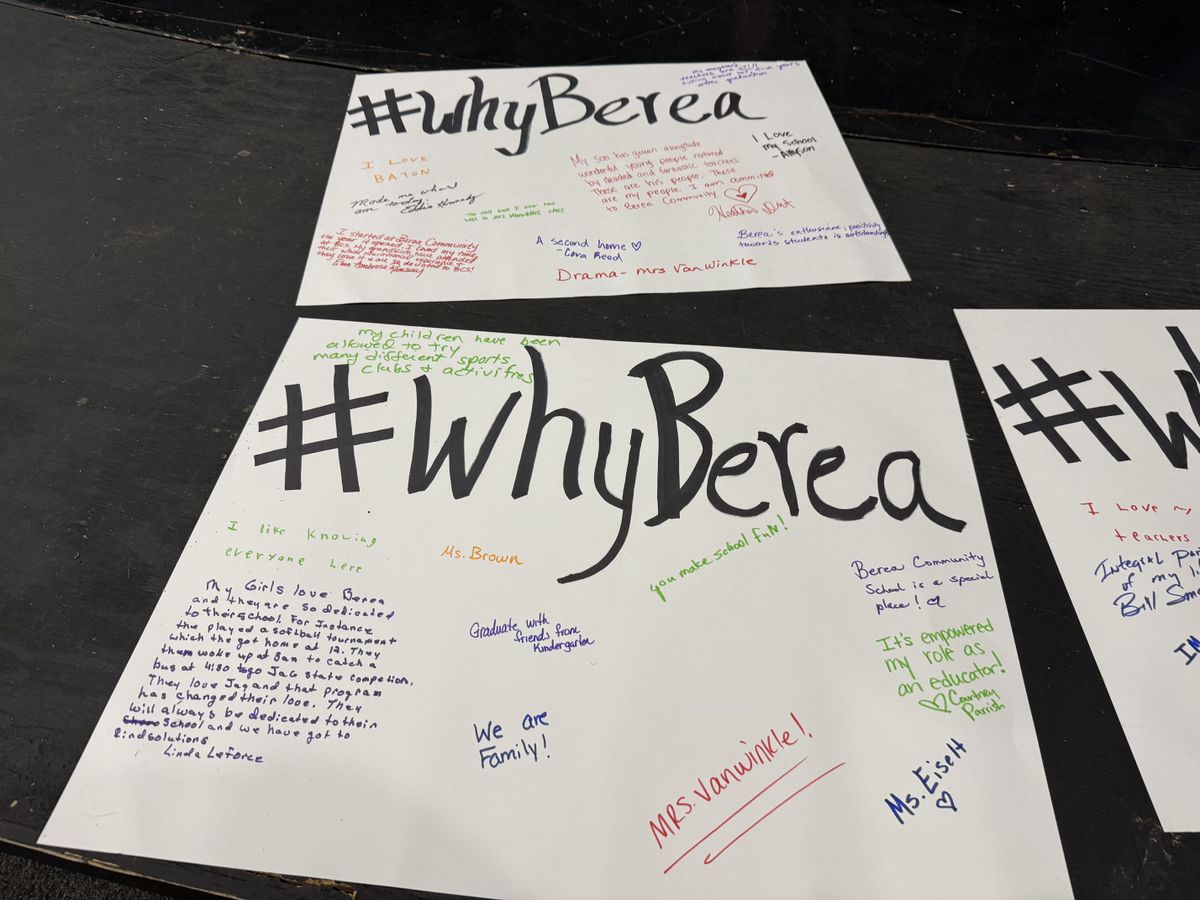 #WhyBerea
teachers are still
after graduation
I LOVE
BATON
Made me who I
am today.
My son has grown alongside
wonderful young people nutured
by devoted and fantastic teachers.
These are his people. These
are my people. I am committed
to Berea Community
I Love
my school
I started at Berea Community
the year it opened. I loved my time
at BCS. My grandkids have attended
they love it & are so devoted to BCS!
A second home ♡
- Cora Reed
Drama- mrs VanWinkle
Berea's enthusiasm; positivity
towards students is outstanding
#WhyBerea
my children have been
allowed to try
many different sports
clubs & activities
I like knowing
everyone here
Ms. Brown
you make school fun!
Berea Community
School is a special
place! ♡
My Girls love Berea
and they are so dedicated
to their school. For Instance
the played a softball tournament
which the got home at 12. They
them woke up at 3am to catch a
bus at 4:30 to go JAG state competion.
They love Jag and that program
has changed their love. They
will always be dedicated to their
School and we have got to
find solutions
Linda Leforce
Graduate with
friends from
Kindergarten
We are
Family!
It's empowered
my role as
an educator!
♡ Cartney
Parrish
MRS. Vanwinkle!
Ms. Eiselt
♡
#W
I Love my
teachers
Integral
of my
Bill